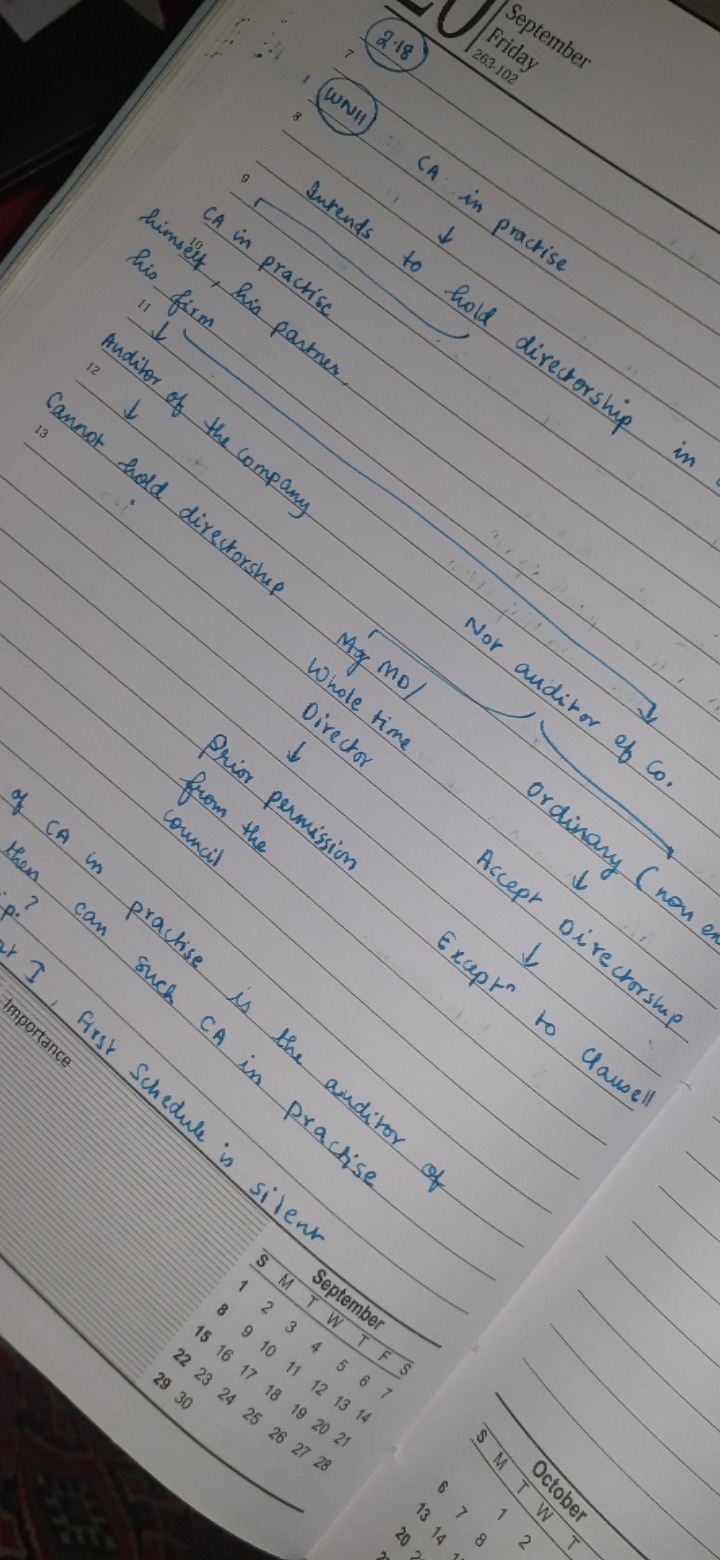 20
September
Friday
263-102
7
2.18
8
WN11
CA in practise
9
Intends to hold directorship in
10
CA in practise
himself, his partner,
his firm
11
Auditor of the company
12
Cannot hold directorship
13
Not auditor of Co.
Mg MD/
Whole time
Director
Prior permission
from the
Council
Ordinary (non ex
Accept Directorship
Exceptn to Clause 11
of CA in practise is the auditor of
then can such CA in practise
ip?
I, First Schedule is silent
Importance
September
S M T W T F S
1 2 3 4 5 6 7
8 9 10 11 12 13 14
15 16 17 18 19 20 21
22 23 24 25 26 27 28
29 30
October
S M T W T
1 2
6 7 8
13 14
20